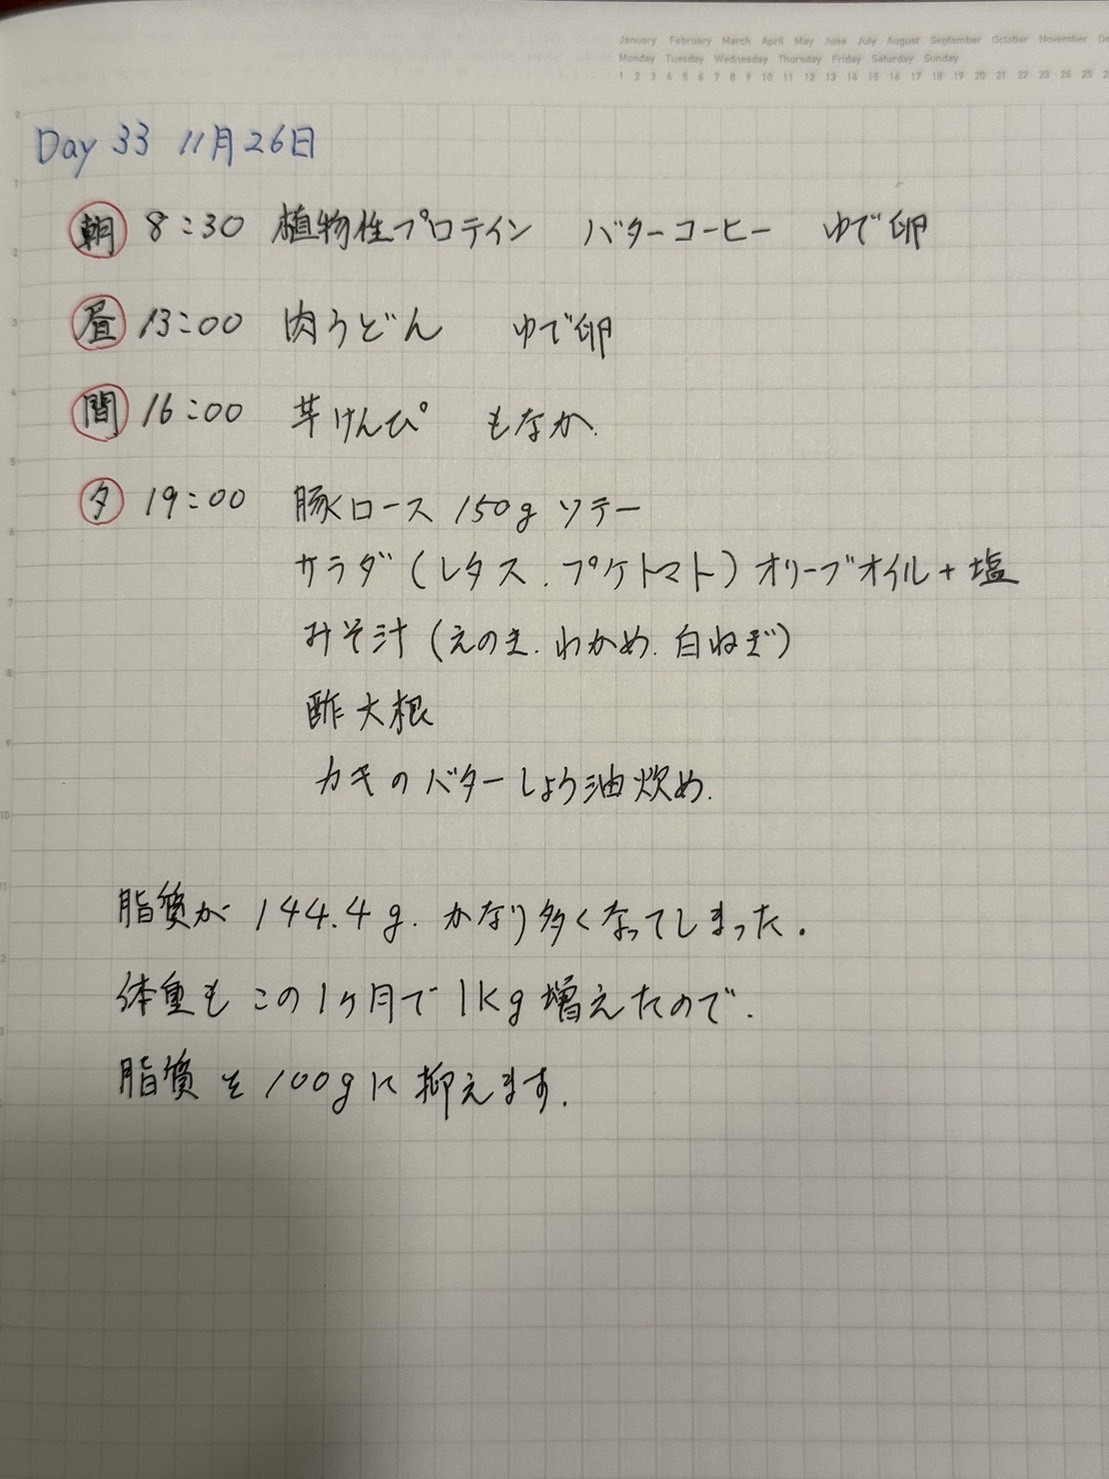 January February March April May June July August September October November De
Monday Tuesday Wednesday Thursday Friday Saturday Sunday
1 2 3 4 5 6 7 8 9 10 11 12 13 14 15 16 17 18 19 20 21 22 23 24 25
Day 33 11月26日
朝 8:30 植物性プロテイン バターコーヒー ゆで卵
昼 13:00 肉うどん ゆで卵
間 16:00 芋けんぴ もなか.
夕 19:00 豚ロース 150g ソテー
サラダ(レタス.プチトマト)オリーブオイル+塩
みそ汁(えのき.わかめ.白ねぎ)
酢大根
カキのバターしょう油炊め.
脂質が 144.4g. かなり多くなってしまった.
体重も この1ヶ月で 1kg 増えたので.
脂質を 100gに 抑えます.